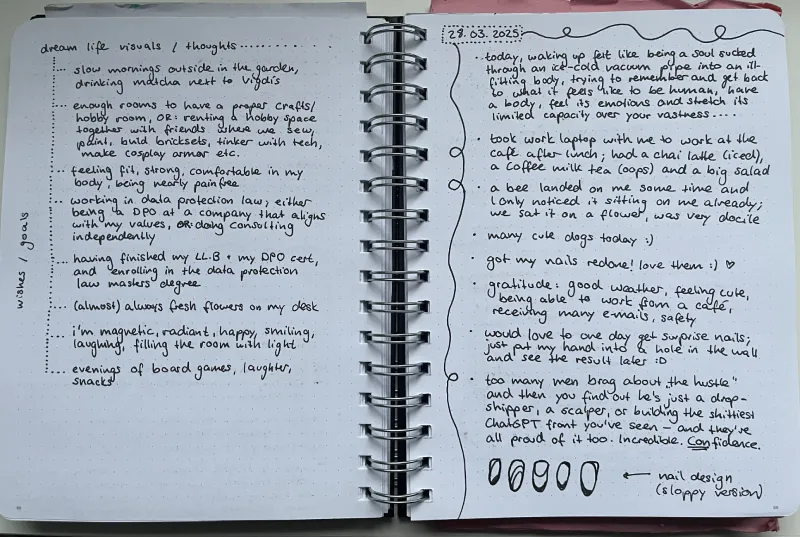 dream life visuals / thoughts
slow mornings outside in the garden,
drinking matcha next to Vigdis
enough rooms to have a proper crafts/
hobby room, OR: renting a hobby space
together with friends where we sew,
paint, build bricksets, tinker with tech,
make cosplay armor etc.
feeling fit, strong, comfortable in my
body, being nearly painfree
working in data protection law; either
being a DPO at a company that aligns
with my values, OR: doing consulting
independently
having finished my LL.B + my DPO cert,
and enrolling in the data protection
law masters degree
(almost) always fresh flowers on my desk
i'm magnetic, radiant, happy, smiling,
laughing, filling the room with light
evenings of board games, laughter,
snacks
wishes / goals
28.03.2025
today, waking up felt like being a soul sucked
through an ice-cold vacuum pipe into an ill-
fitting body, trying to remember and get back
to what it feels like to be human, have
a body, feel its emotions and stretch its
limited capacity over your vastness....
took work laptop with me to work at the
café after lunch; had a chai latte (iced),
a coffee milk tea (oops) and a big salad
a bee landed on me some time and
I only noticed it sitting on me already;
we sat it on a flower, was very docile
many cute dogs today :)
got my nails redone! love them :) ♡
gratitude: good weather, feeling cute,
being able to work from a café,
receiving many e-mails, safety
would love to one day get surprise nails;
just put my hand into a hole in the wall
and see the result later :D
too many men brag about „the hustle"
and then you find out he's just a drop-
shipper, a scalper, or building the shittiest
ChatGPT front you've seen – and they're
all proud of it too. Incredible. Confidence.
← nail design
(sloppy version)